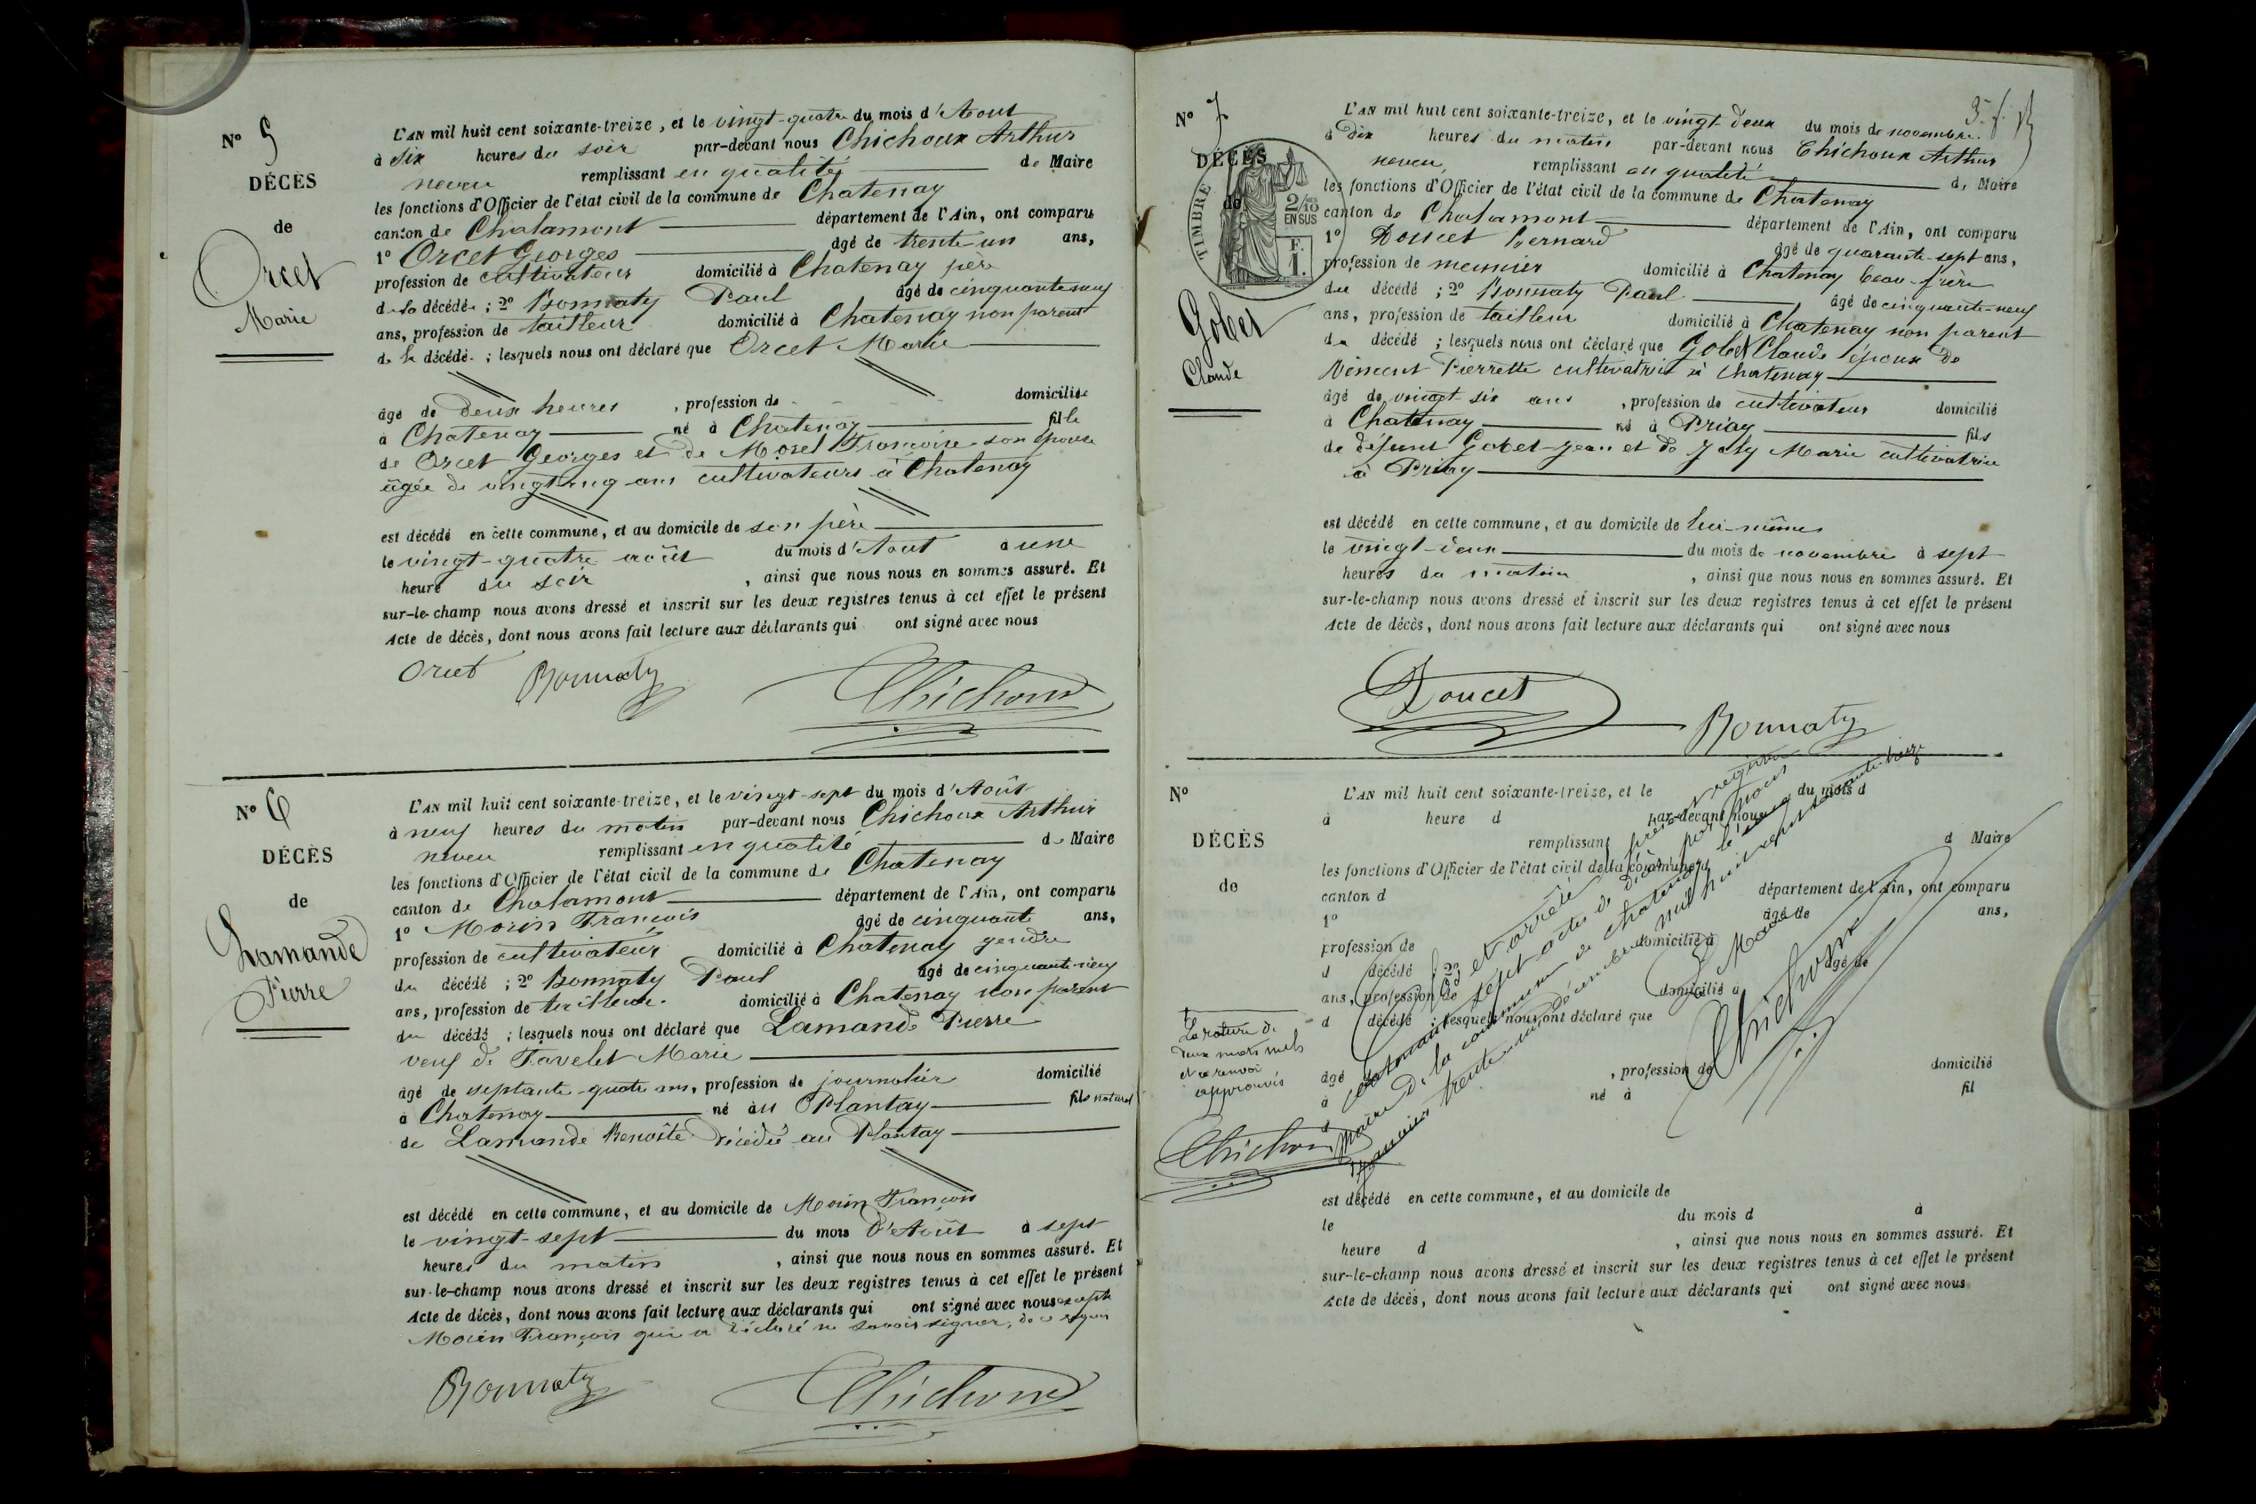 N° 5
DÉCÈS
de
Orcet
Marie
L'AN mil huit cent soixante-treize, et le vingt-quatre du mois d'Aout
à six heures du soir par-devant nous Chichoux Arthur
neveu remplissant en qualité de Maire
les fonctions d'Officier de l'état civil de la commune de Chatenay
canton de Chalamont département de l'Ain, ont comparu
1° Orcet Georges âgé de trente un ans,
profession de cultivateur domicilié à Chatenay père
de la décédée ; 2° Bonnaty Paul âgé de cinquante-neuf
ans, profession de tailleur domicilié à Chatenay non parent
de la décédé. ; lesquels nous ont déclaré que Orcet Marie
âgé de deux heures , profession de domiciliée
à Chatenay né à Chatenay fille
de Orcet Georges et de Morel Françoise son épouse
âgée de vingt cinq ans cultivateurs à Chatenay
est décédé en cette commune, et au domicile de son père
le vingt-quatre août du mois d'Aout à une
heure du soir , ainsi que nous nous en sommes assuré. Et
sur-le-champ nous avons dressé et inscrit sur les deux registres tenus à cet effet le présent
Acte de décès, dont nous avons fait lecture aux déclarants qui ont signé avec nous
Orcet Bonnaty Chichoux
N° 6
DÉCÈS
de
Lamande
Pierre
L'AN mil huit cent soixante-treize, et le vingt-sept du mois d'Août
à neuf heures du matin par-devant nous Chichoux Arthur
neveu remplissant en qualité de Maire
les fonctions d'Officier de l'état civil de la commune de Chatenay
canton de Chalamont département de l'Ain, ont comparu
1° Morin François âgé de cinquante ans,
profession de cultivateur domicilié à Chatenay gendre
du décédé ; 2° Bonnaty Paul âgé de cinquante-neuf
ans, profession de tailleur domicilié à Chatenay non parent
du décédé ; lesquels nous ont déclaré que Lamande Pierre
veuf de Favelet Marie
âgé de septante-quatre ans, profession de journalier domicilié
à Chatenay né au Plantay fils naturel
de Lamande Benoîte décédée au Plantay
est décédé en cette commune, et au domicile de Morin François
le vingt-sept du mois d'Août à sept
heures du matin , ainsi que nous nous en sommes assuré. Et
sur-le-champ nous avons dressé et inscrit sur les deux registres tenus à cet effet le présent
Acte de décès, dont nous avons fait lecture aux déclarants qui ont signé avec nous excepté
Morin François qui a déclaré ne savoir signer, de ce requis
Bonnaty Chichoux
N° 7
DÉCÈS
de
TIMBRE
2/10 EN SUS
F. 1.
Gobet
Claude
L'AN mil huit cent soixante-treize, et le vingt-deux du mois de novembre
à dix heures du matin par-devant nous Chichoux Arthur
neveu remplissant en qualité de Maire
les fonctions d'Officier de l'état civil de la commune de Chatenay
canton de Chalamont département de l'Ain, ont comparu
1° Doucet Bernard âgé de quarante-sept ans,
profession de meunier domicilié à Chatenay beau-frère
du décédé ; 2° Bonnaty Paul âgé de cinquante-neuf
ans, profession de tailleur domicilié à Chatenay non parent
du décédé ; lesquels nous ont déclaré que Gobet Claude époux de
Vincent Pierrette cultivatrice à Chatenay
âgé de vingt-six ans , profession de cultivateur domicilié
à Chatenay né à Priay fils
de défunt Gobet Jean et de Joly Marie cultivatrice
à Priay
est décédé en cette commune, et au domicile de lui-même
le vingt-deux du mois de novembre à sept
heures du matin , ainsi que nous nous en sommes assuré. Et
sur-le-champ nous avons dressé et inscrit sur les deux registres tenus à cet effet le présent
Acte de décès, dont nous avons fait lecture aux déclarants qui ont signé avec nous
Doucet Bonnaty
N°
DÉCÈS
de
L'AN mil huit cent soixante-treize, et le du mois d
à heure d par-devant nous
remplissant d Maire
les fonctions d'Officier de l'état civil de la commune d
canton d département de l'Ain, ont comparu
1° âgé de ans,
profession de domicilié à
d décédé ; 2° âgé de
ans, profession de domicilié à
d décédé ; lesquels nous ont déclaré que
âgé de , profession de domicilié
à né à fil
d
est décédé en cette commune, et au domicile de
le du mois d à
heure d , ainsi que nous nous en sommes assuré. Et
sur-le-champ nous avons dressé et inscrit sur les deux registres tenus à cet effet le présent
Acte de décès, dont nous avons fait lecture aux déclarants qui ont signé avec nous
Clos et arrêté le présent registre
contenant sept actes de décès par nous
Maire de la commune de Chatenay le
janvier trente-un décembre mil huit cent soixante-treize
Le Maire
Chichoux
La rature de
deux mots nuls
et ce renvoi
approuvés
Chichoux